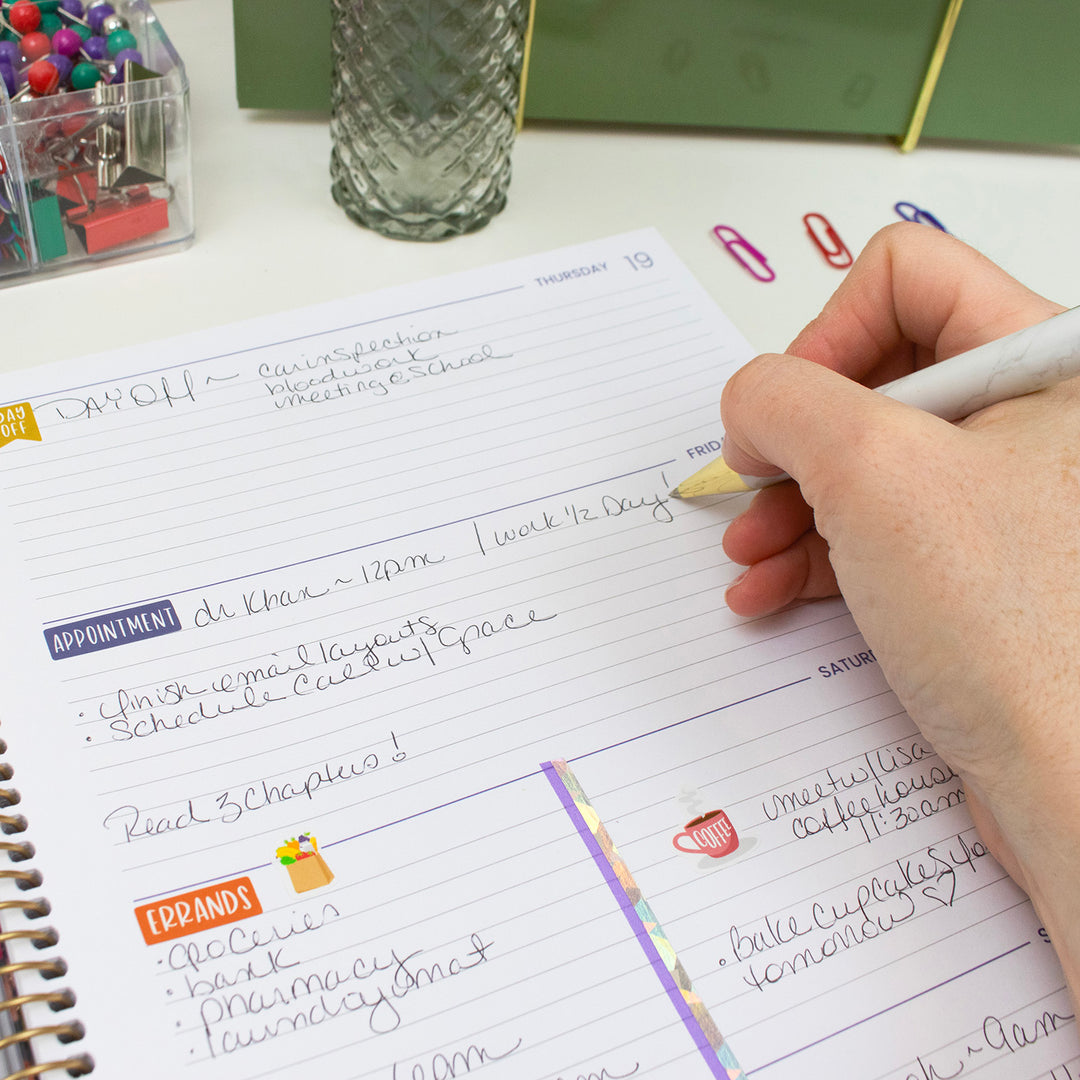 THURSDAY 19
DAY OFF
DAY OFF ~ car inspection
bloodwork
meeting @ School
FRID
APPOINTMENT
dr Khan ~ 12pm / work 1/2 Day!
· finish email layouts
· Schedule Call w/ Grace
Read 3 Chapters!
SATUR
COFFEE
meet w/ Lisa
coffee house
11:30am
· Bake Cupcakes
tomorrow ♡
ERRANDS
· groceries
· bank
· pharmacy
· laundry mat
S
~ 9am